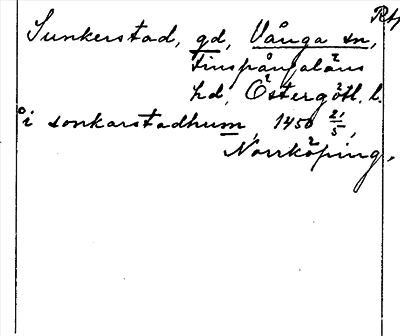 Rtp
Sunkerstad, gd, Vånga sn,
Finspångaläns
hd, Östergötl. l.
i sonkarstadhum, 1450 21/5,
Norrköping.